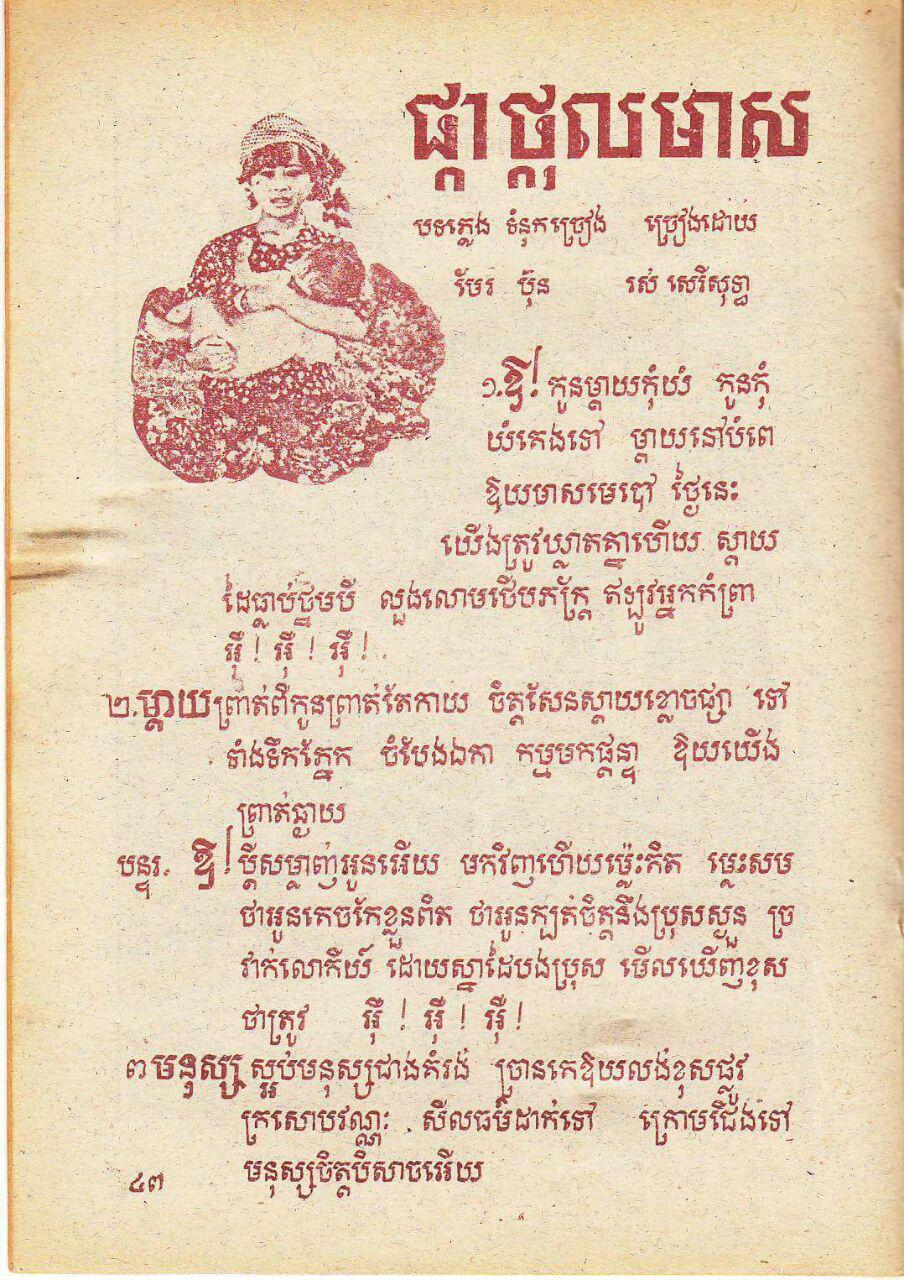 ផ្កាថ្កុលមាស
បទភ្លេង ទំនុកច្រៀង ច្រៀងដោយ
មែរ ប៊ុន រស់ សេរីសុទ្ធា
១. ឱ! កូនម្តាយកុំយំ កូនកុំ
យំគេងទៅ ម្តាយនៅបំពេ
ឱយមាសមេបៅ ថ្ងៃនេះ
យើងត្រូវឃ្លាតគ្នាហើយ ស្តាយ
ដៃធ្លាប់ថ្នមបី លួងលោមជើបភក្ត្រ ឥឡូវអ្នកកំព្រា
អ៊ឺ! អ៊ឺ! អ៊ឺ!
២. ម្តាយព្រាត់ពីកូនព្រាត់តែកាយ ចិត្តសែនស្តាយខ្លោចផ្សា ទៅ
ទាំងទឹកភ្នែក ចំបែងឯកា កម្មមកផ្តន្ទា ឱយយើង
ព្រាត់ឆ្ងាយ
បន្ទរ. ឱ! ប្តីសម្លាញ់អូនអើយ មកវិញហើយម្ល៉េះកិត ម្លេះសម
ថាអូនគេចកែខ្លួនពិត ថាអូនក្បត់ចិត្តនឹងប្រុសស្ងួន ច្រ
វាក់លោកីយ៍ ដោយស្នាដៃបងប្រុស មើលឃើញខុស
ថាត្រូវ អ៊ឺ! អ៊ឺ! អ៊ឺ!
៣ មនុស្ស ស្អប់មនុស្សជាងគំរង់ ច្រានគេឱយលង់ខុសផ្លូវ
ក្រសោបវណ្ណៈ សីលធម៌ដាក់ទៅ ក្រោមជើងទៅ
មនុស្សចិត្តបិសាចអើយ
៤៧